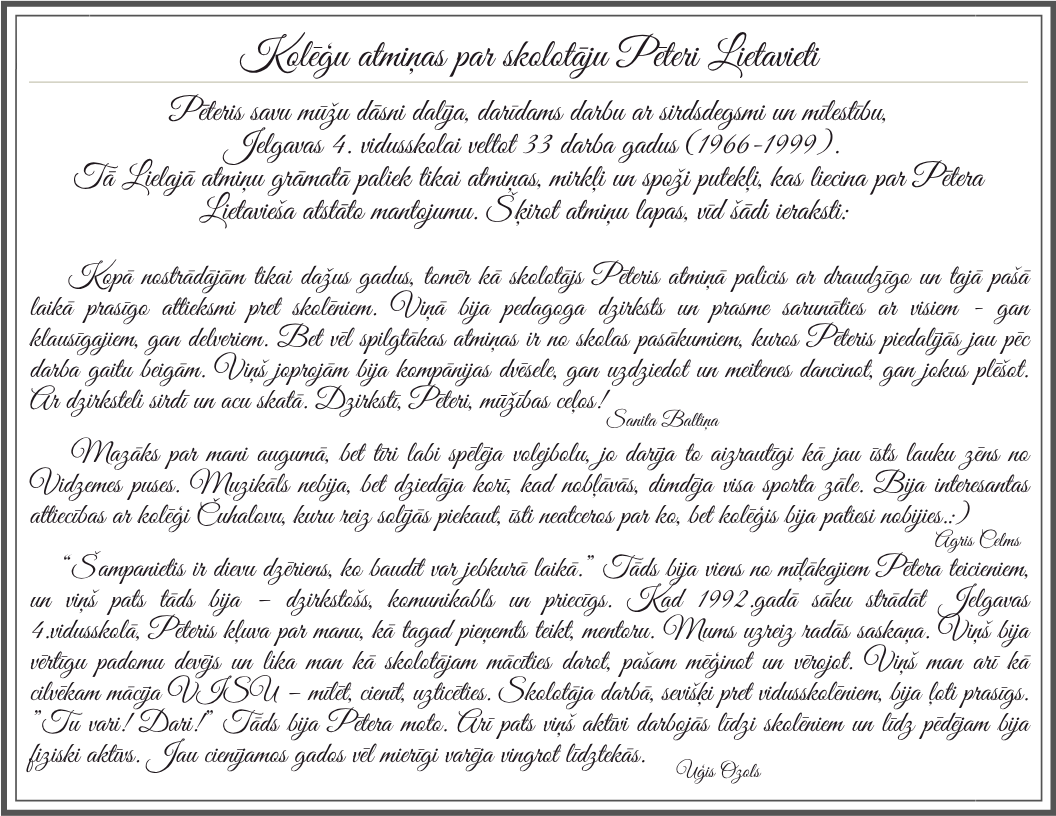 Kolēģu atmiņas par skolotāju Pēteri Lietavieti
Pēteris savu mūžu dāsni dalīja, darīdams darbu ar sirdsdegsmi un mīlestību,
Jelgavas 4. vidusskolai veltot 33 darba gadus (1966-1999).
Tā Lielajā atmiņu grāmatā paliek tikai atmiņas, mirkļi un spoži putekļi, kas liecina par Pētera
Lietavieša atstāto mantojumu. Šķirot atmiņu lapas, vīd šādi ieraksti:
Kopā nostrādājām tikai dažus gadus, tomēr kā skolotājs Pēteris atmiņā palicis ar draudzīgo un tajā pašā
laikā prasīgo attieksmi pret skolēniem. Viņā bija pedagoga dzirksts un prasme sarunāties ar visiem - gan
klausīgajiem, gan delveriem. Bet vēl spilgtākas atmiņas ir no skolas pasākumiem, kuros Pēteris piedalījās jau pēc
darba gaitu beigām. Viņš joprojām bija kompānijas dvēsele, gan uzdziedot un meitenes dancinot, gan jokus plēšot.
Ar dzirksteli sirdī un acu skatā. Dzirksti, Pēteri, mūžības ceļos!
Sanita Baltiņa
Mazāks par mani augumā, bet tīri labi spēlēja volejbolu, jo darīja to aizrautīgi kā jau īsts lauku zēns no
Vidzemes puses. Muzikāls nebija, bet dziedāja korī, kad nobļāvās, dimdēja visa sporta zāle. Bija interesantas
attiecības ar kolēģi Čuhalovu, kuru reiz solījās piekaut, īsti neatceros par ko, bet kolēģis bija patiesi nobijies..:)
Agris Celms
“Šampanietis ir dievu dzēriens, ko baudīt var jebkurā laikā.” Tāds bija viens no mīļākajiem Pētera teicieniem,
un viņš pats tāds bija – dzirkstošs, komunikabls un priecīgs. Kad 1992.gadā sāku strādāt Jelgavas
4.vidusskolā, Pēteris kļuva par manu, kā tagad pieņemts teikt, mentoru. Mums uzreiz radās saskaņa. Viņš bija
vērtīgu padomu devējs un lika man kā skolotājam mācīties darot, pašam mēģinot un vērojot. Viņš man arī kā
cilvēkam mācīja VISU – mīlēt, cienīt, uzticēties. Skolotāja darbā, sevišķi pret vidusskolēniem, bija ļoti prasīgs.
”Tu vari! Dari!” Tāds bija Pētera moto. Arī pats viņš aktīvi darbojās līdzi skolēniem un līdz pēdējam bija
fiziski aktīvs. Jau cienījamos gados vēl mierīgi varēja vingrot līdztekās.
Uģis Ozols